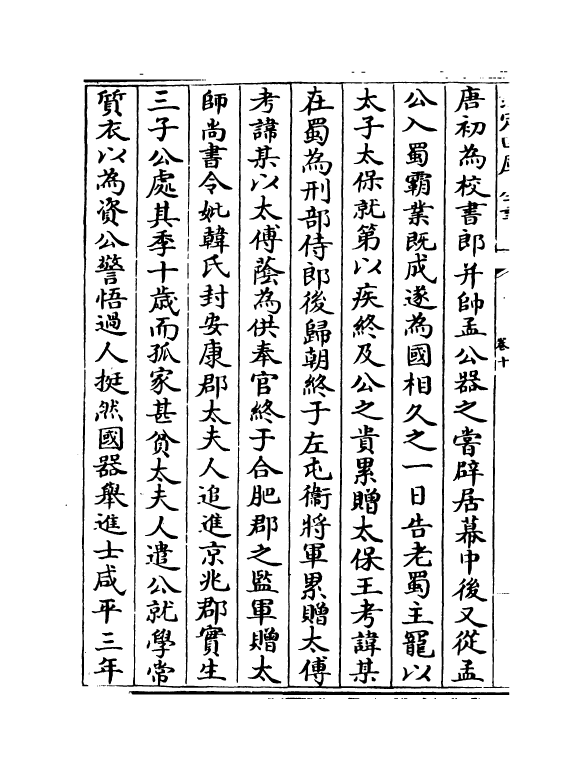 卷十
唐初為校書郎并帥孟公器之嘗辟居幕中後又從孟
公入蜀霸業既成遂為國相久之一日告老蜀主寵以
太子太保就第以疾終及公之貴累贈太保王考諱某
在蜀為刑部侍郎後歸朝終于左屯衛將軍累贈太傅
考諱某以太傅蔭為供奉官終于合肥郡之監軍贈太
師尚書令妣韓氏封安康郡太夫人追進京兆郡實生
三子公處其季十歲而孤家甚貧太夫人遣公就學常
質衣以為資公警悟過人挺然國器舉進士咸平三年